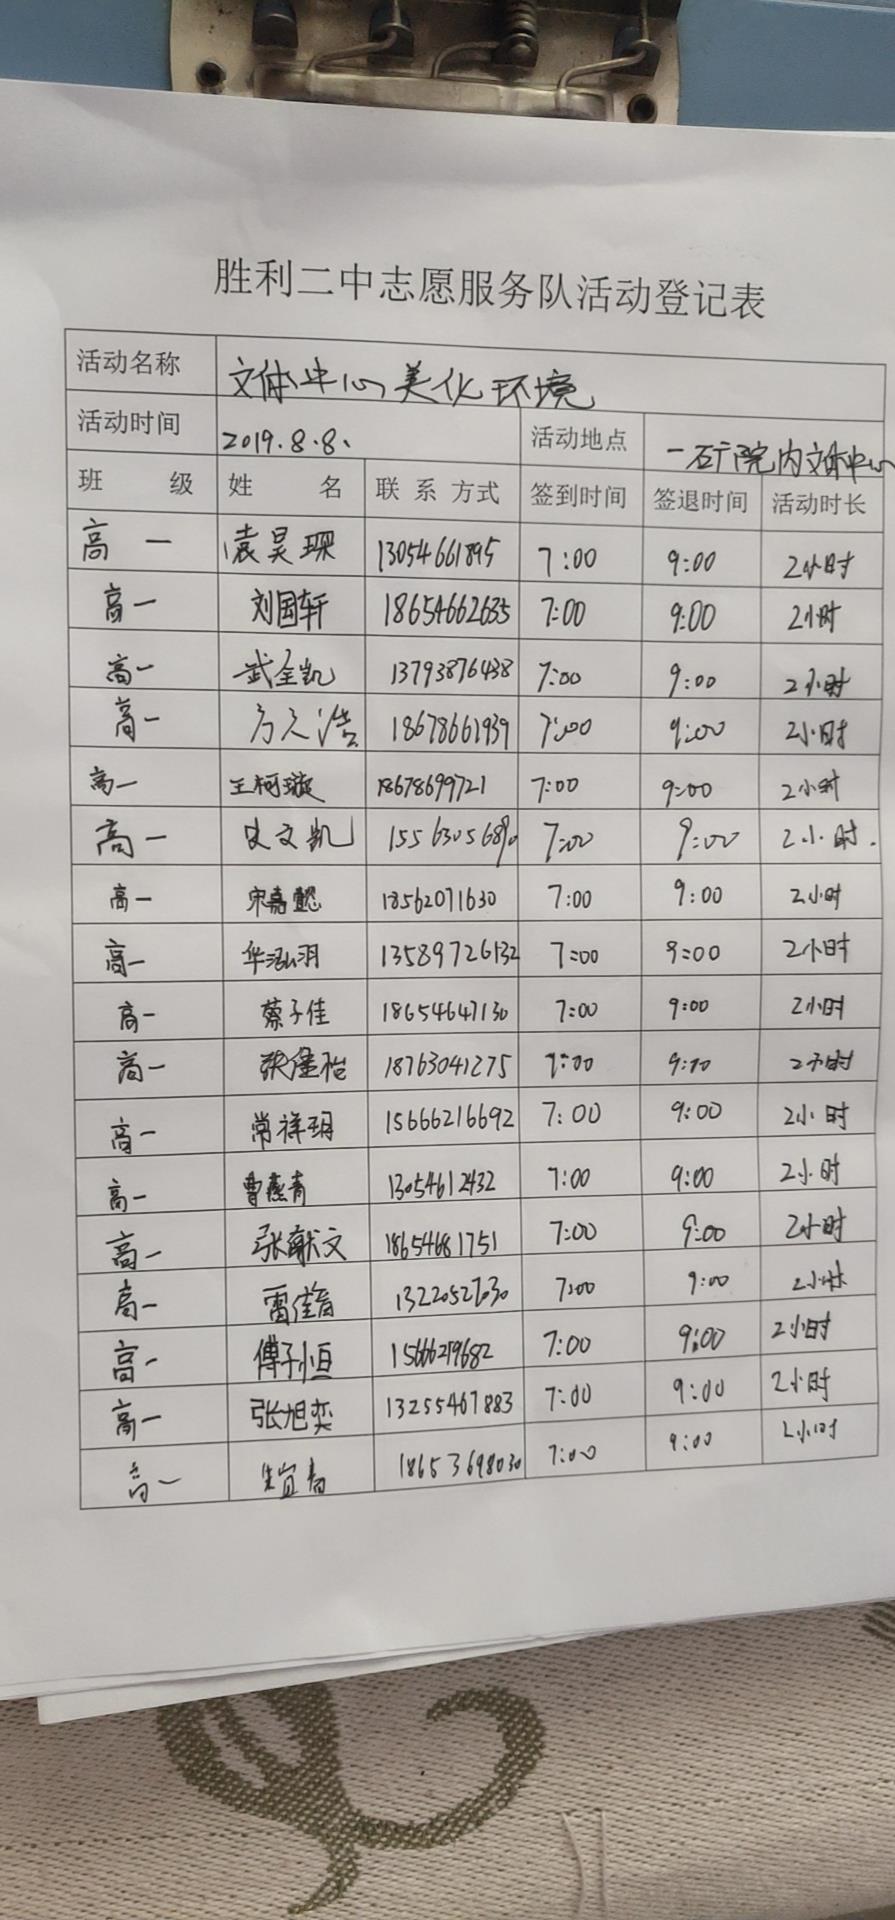 胜利二中志愿服务队活动登记表
活动名称 文体中心美化环境
活动时间 2019.8.8. 活动地点 一矿院内文体中心
班 级 姓 名 联系方式 签到时间 签退时间 活动时长
高一 袁昊琛 13054661895 7:00 9:00 2小时
高一 刘国轩 18654662635 7:00 9:00 2小时
高一 武全凯 13793876438 7:00 9:00 2小时
高一 方天浩 18678661939 7:00 9:00 2小时
高一 王柯璇 18678699721 7:00 9:00 2小时
高一 史文凯 7:00 9:00 2小时.
高一 宋嘉懿 18562071630 7:00 9:00 2小时
高一 华泓羽 13589726132 7:00 9:00 2小时
高一 蔡子佳 18654647130 7:00 9:00 2小时
高一 18763041275 7:00 9:00 2小时
高一 常祥玥 15666216692 7:00 9:00 2小时
高一 曹燕青 13054612432 7:00 9:00 2小时
高一 张献文 18654681751 7:00 9:00 2小时
高一 7:00 9:00 2小时
高一 傅子恒 15666219682 7:00 9:00 2小时
高一 张旭奕 13255467883 7:00 9:00 2小时
高一 18653698030 7:00 9:00 2小时